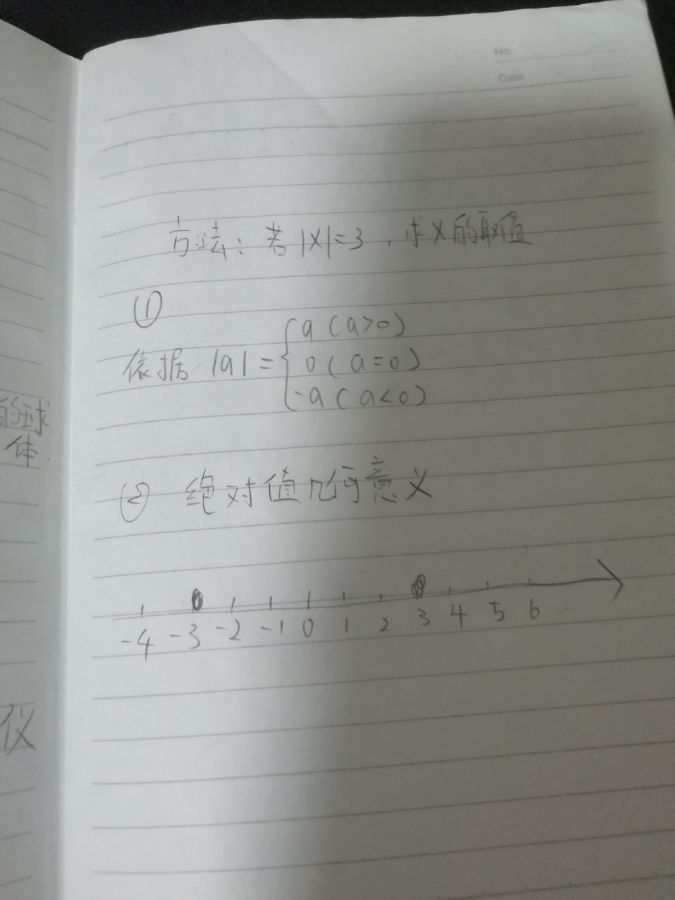 No.
Date
方法：若|x|=3，求x的取值
①
依据 |a|={a(a>0)
0(a=0)
-a(a<0)
② 绝对值几何意义
-4 -3 -2 -1 0 1 2 3 4 5 6
的球
体
仪